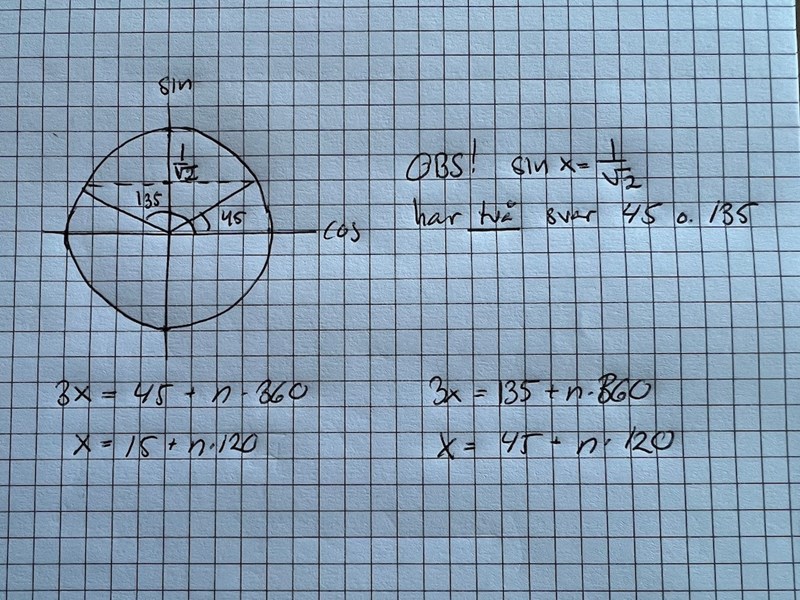 sin
1/√2
135
45
cos
OBS! sin x = 1/√2
har två svar 45 o. 135
3x = 45 + n · 360
x = 15 + n · 120
3x = 135 + n · 360
x = 45 + n · 120